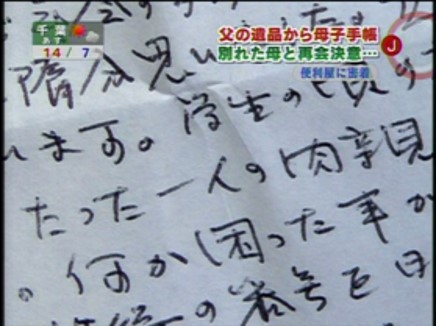 千葉
14 / 7
父の遺品から母子手帳
別れた母と再会決意…
便利屋に密着
J
随分思い
います。学生の頃
たった一人の肉親
。何か困った事か
の番号を